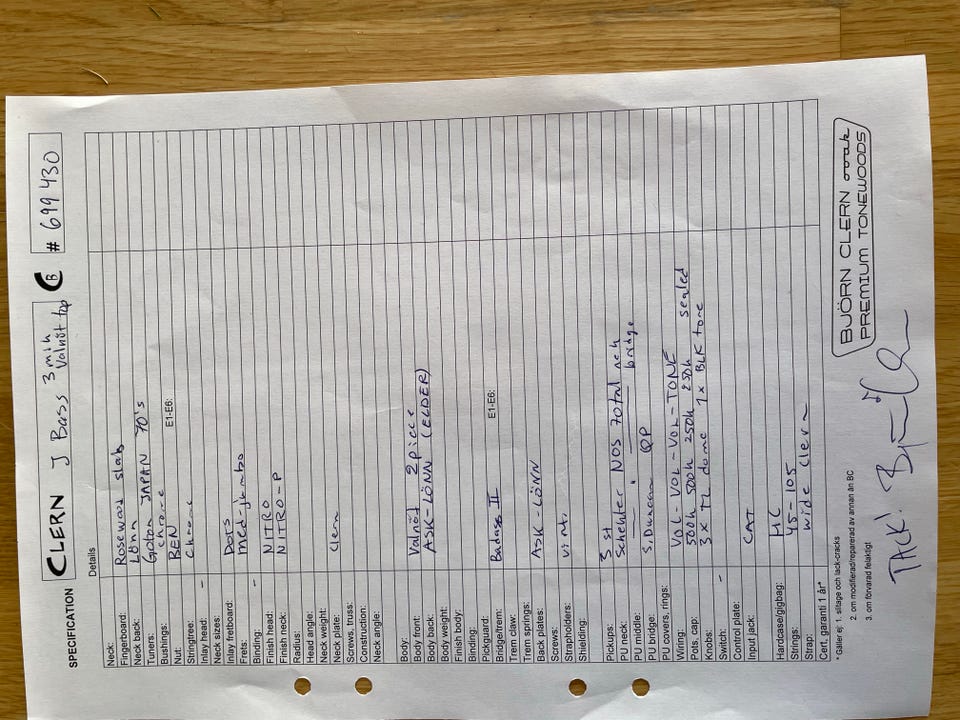 SPECIFICATION
CLERN J Bass 3 mik Valnöt top
CB
# 699 430
Details
Neck:
Fingerboard: Rosewood slab
Neck back: Lönn
Tuners: Gotoh JAPAN 70's
Bushings: chrome
Nut: BEN E1-E6:
Stringtree: Chrome
Inlay head: –
Neck sizes:
Inlay fretboard: Dots
Frets: med-jumbo
Binding: –
Finish head: NITRO
Finish neck: NITRO-P
Radius:
Head angle:
Neck weight:
Neck plate: Clern
Screws, truss:
Construction:
Neck angle:
Body:
Body front: Valnöt 2 piece
Body back: ASK-LÖNN (ELDER)
Body weight:
Finish body:
Binding:
Pickguard:
Bridge/trem: Badass II E1-E6:
Trem claw:
Trem springs:
Back plates: ASK-LÖNN
Screws:
Strapholders: vint.
Shielding:
Pickups: 3 st
PU neck: Schekter NOS 70tal neck
PU middle: — " — bridge
PU bridge: S. Duncan QP
PU covers, rings:
Wiring: VOL-VOL-VOL-TONE
Pots, cap: 500k 500k 250k 250k sealed
Knobs: 3 x TL dome 1x BLK tone
Switch: –
Control plate:
Input jack: CAT
Hardcase/gigbag: HC
Strings: 45-105
Strap: wide Clern
Cert. garanti 1 år*
* Gäller ej: 1. slitage och lack-cracks
2. om modifierad/reparerad av annan än BC
3. om förvarad felaktigt
TACK!
BJÖRN CLERN
PREMIUM TONEWOODS